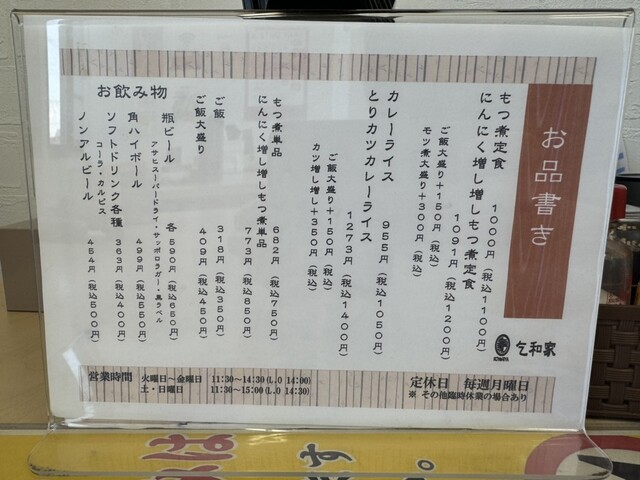 お品書き
もつ煮定食 1000円(税込1100円)
にんにく増し増しもつ煮定食 1091円(税込1200円)
ご飯大盛り+150円(税込)
モツ煮大盛り+300円(税込)
カレーライス 955円(税込1050円)
とりカツカレーライス 1273円(税込1400円)
ご飯大盛り+150円(税込)
カツ増し増し+350円(税込)
もつ煮単品 682円(税込750円)
にんにく増し増しもつ煮単品 773円(税込850円)
ご飯 318円(税込350円)
ご飯大盛り 409円(税込450円)
お飲み物
瓶ビール 各590円(税込650円)
アサヒスーパードライ・サッポロラガー・黒ラベル
角ハイボール 499円(税込550円)
ソフトドリンク各種 363円(税込400円)
コーラ・カルピス
ノンアルビール 454円(税込500円)
乞和家
営業時間 火曜日~金曜日 11:30~14:30(L.O 14:00)
土・日曜日 11:30~15:00(L.O 14:30)
定休日 毎週月曜日
※ その他臨時休業の場合あり
は
す